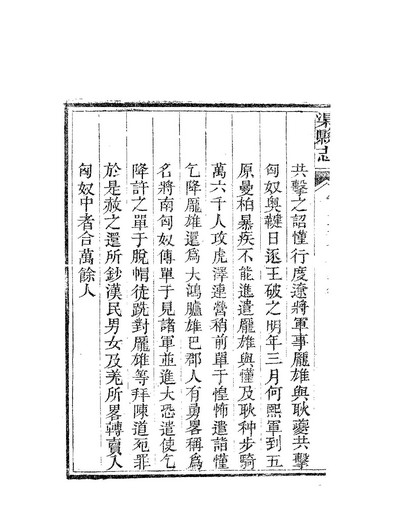 渠縣志
共擊之詔慬行度遼將軍事龐雄與耿夔共擊
匈奴奧鞬日逐王破之明年三月何熙軍到五
原曼柏暴疾不能進遣龐雄與慬及耿种步騎
萬六千人攻虎澤連營稍前單于惶怖遣詣慬
乞降龐雄還爲大鴻臚雄巴郡人有勇畧稱爲
名將南匈奴傳單于見諸軍並進大恐遣使乞
降許之單于脫帽徒跣對龐雄等拜陳道死罪
於是赦之還所鈔漢民男女及羌所畧轉賣入
匈奴中者合萬餘人